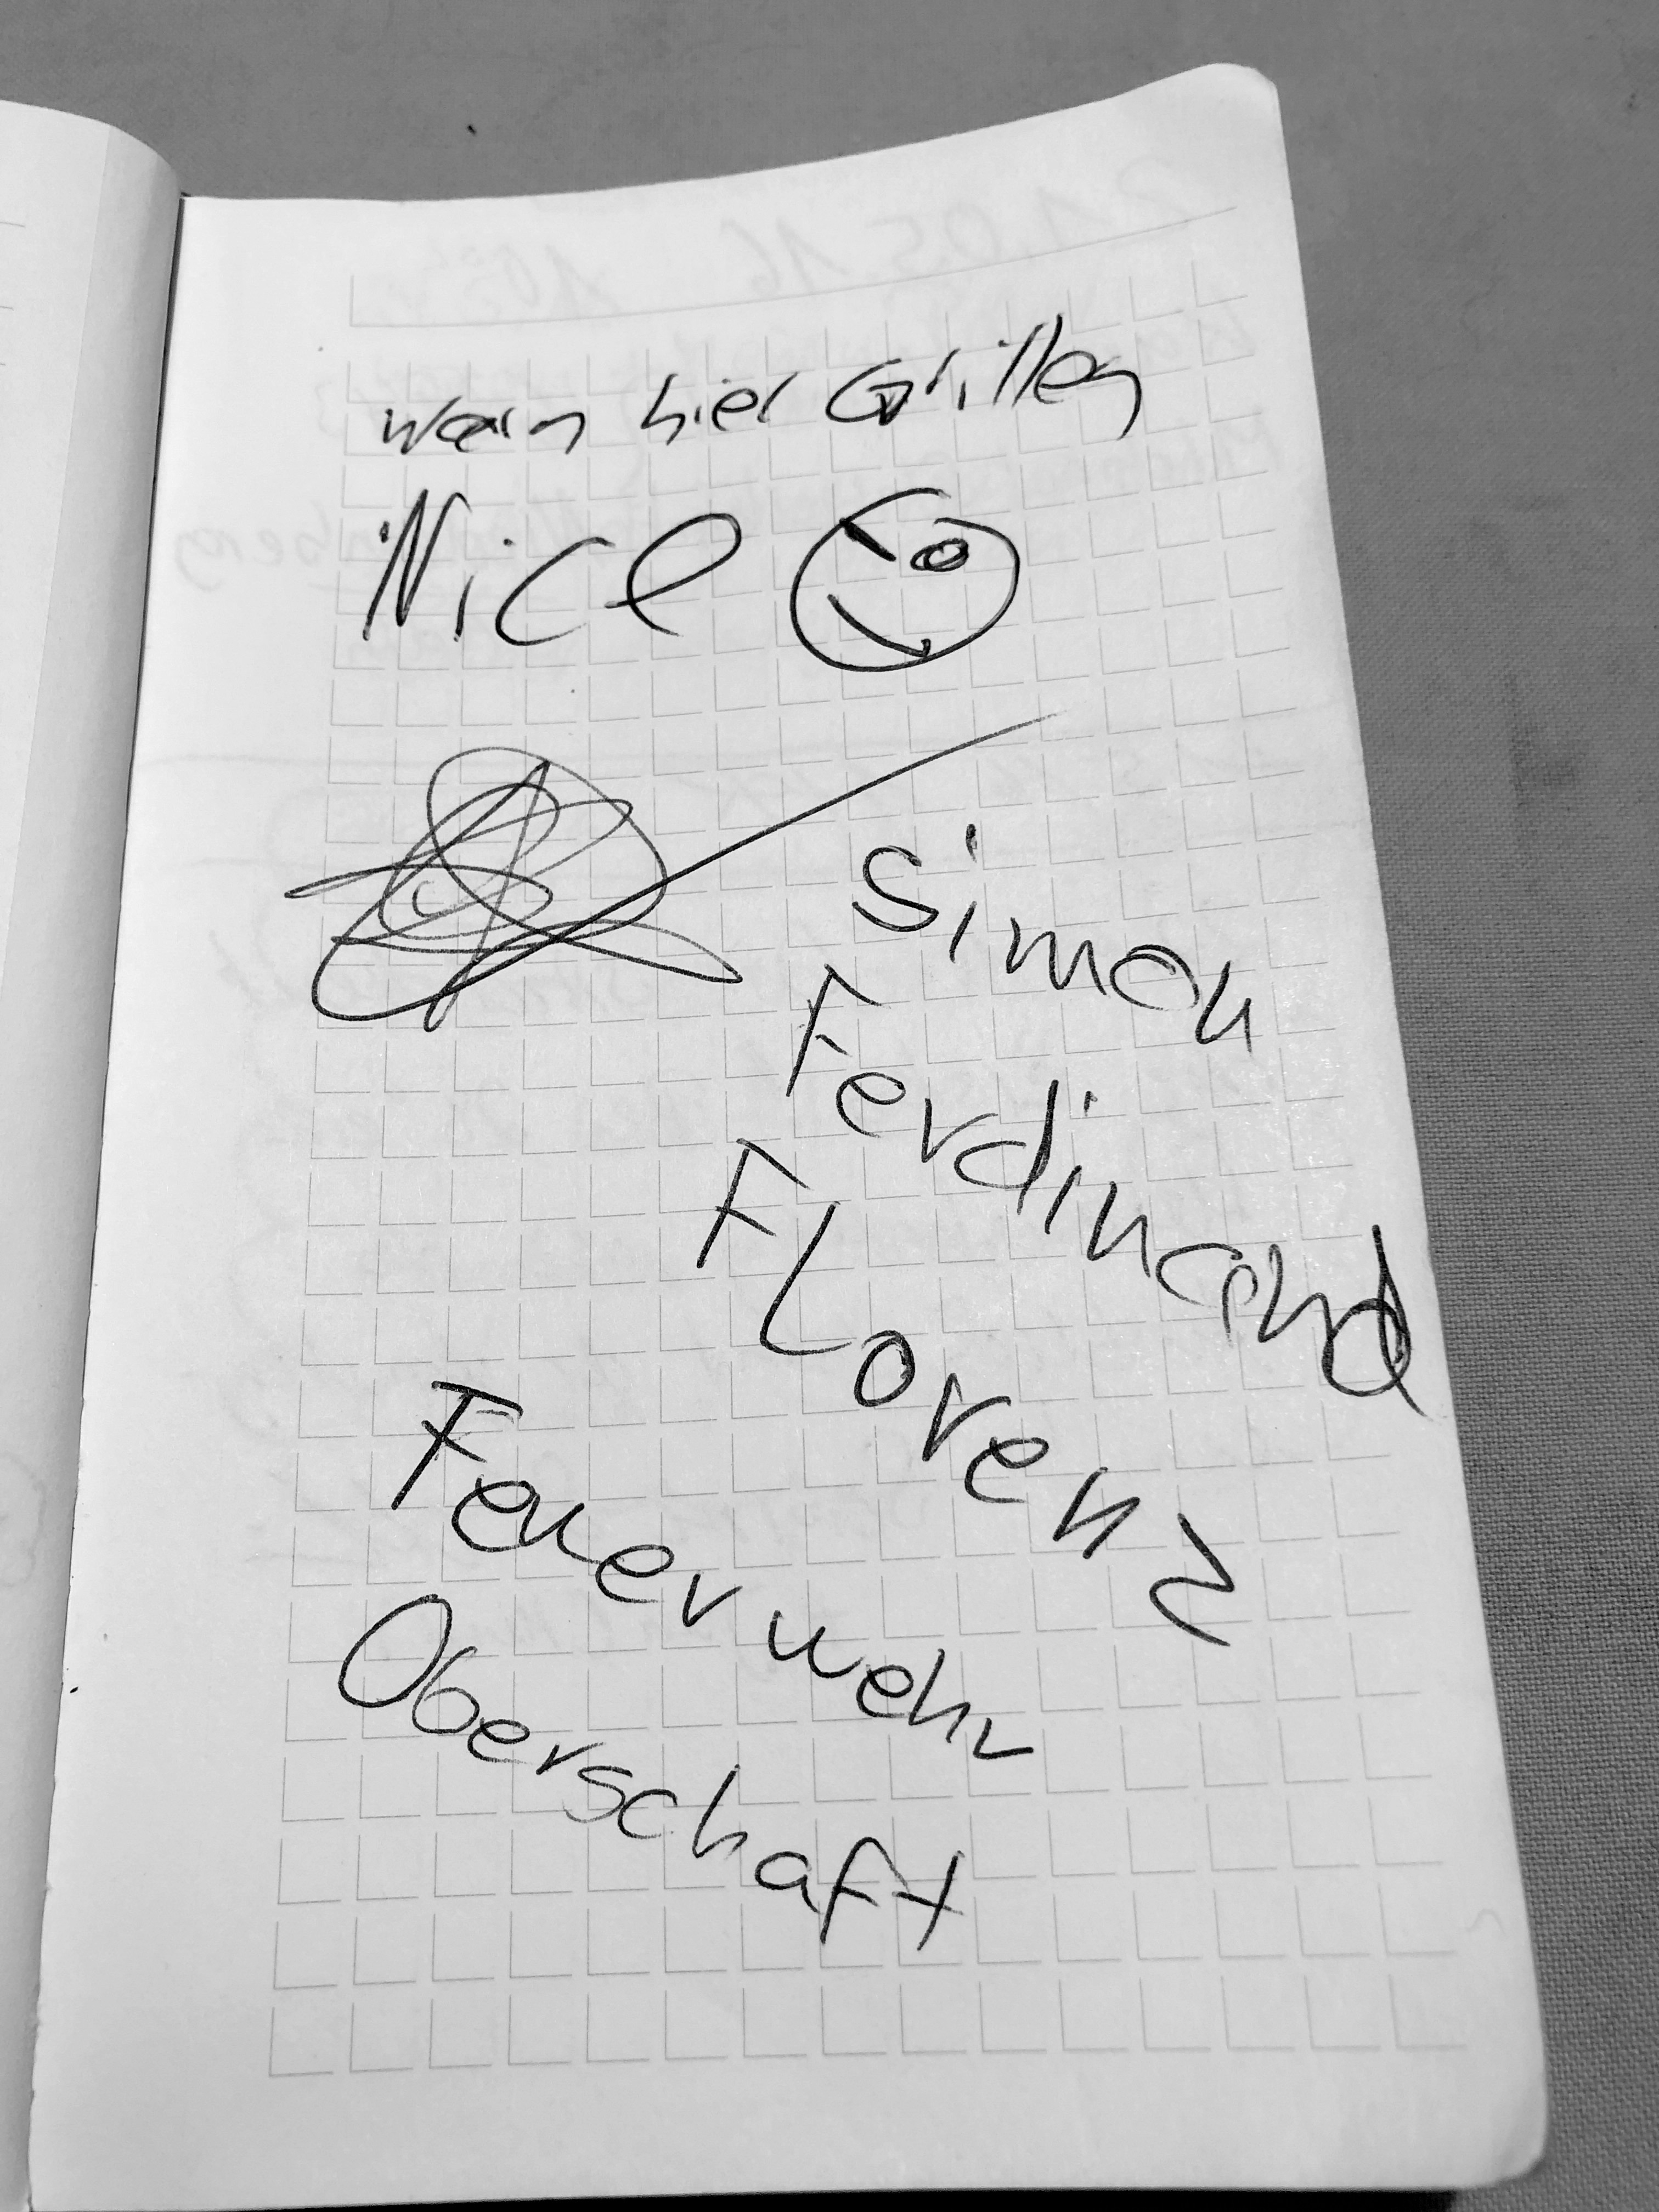 warn hier Grillen
Nice
Simon
Ferdinand
FLorenz
Feuerwehr
Oberschaft